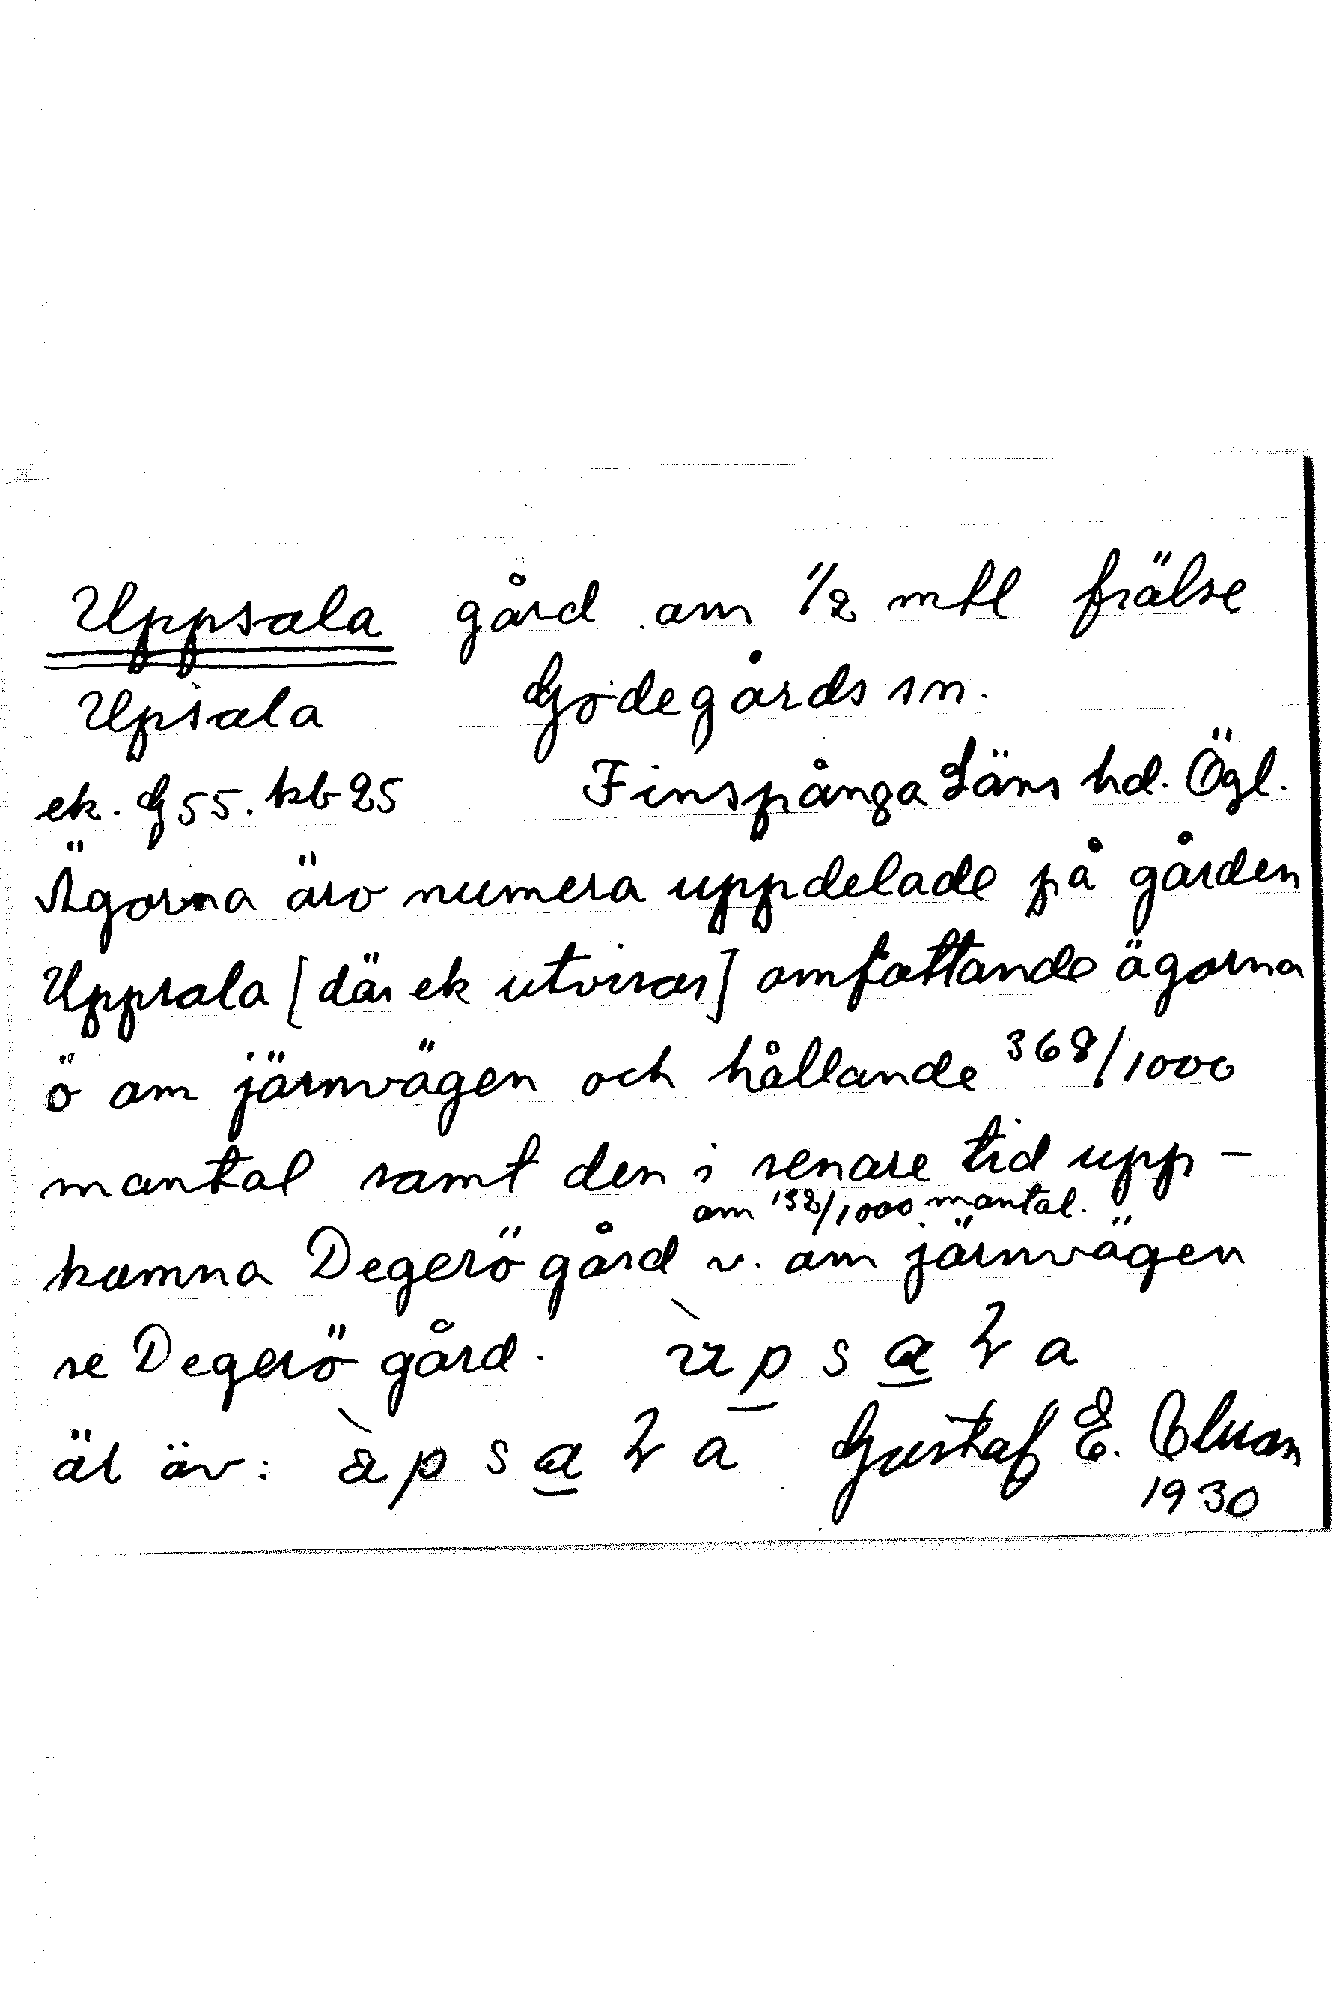 Uppsala gård om 1/2 mtl frälse
Upsala Godegårds sn.
ek. G 55. kb 25 Finspånga Läns hd. Ögl.
Ägorna äro numera uppdelade på gården
Uppsala [där ek utvisar] omfattande ägorna
ö om järnvägen och hållande 368/1000
mantal samt den i senare tid upp-
om 132/1000 mantal.
komna Degerö gård v. om järnvägen
se Degerö gård. p s a a
äl äv: p s a a Gustaf E.
1930